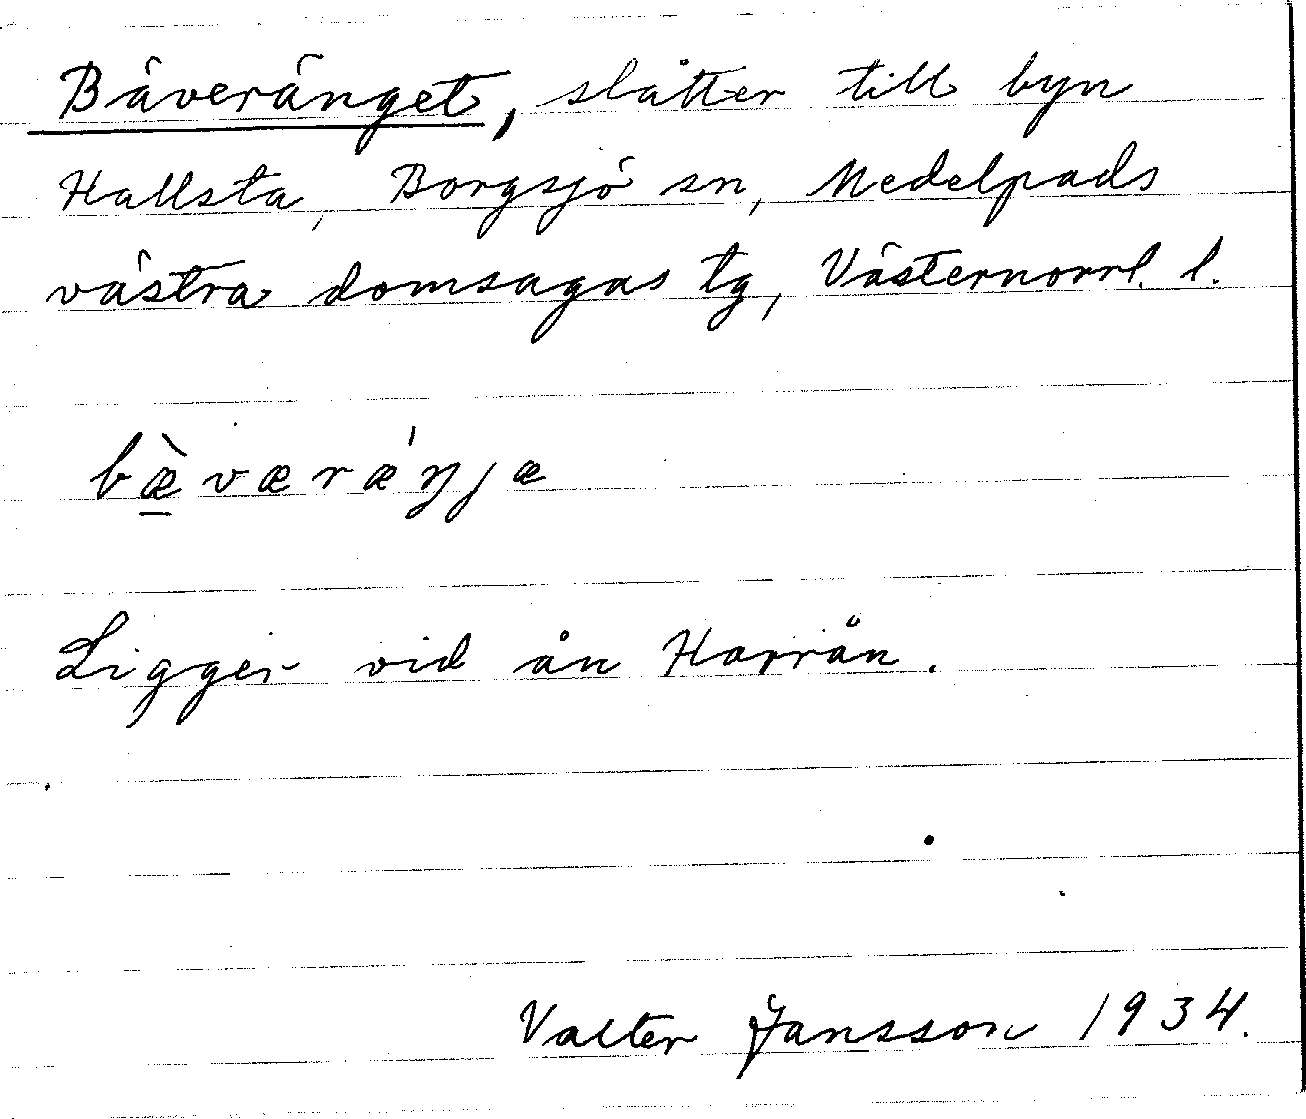 Bäveränget, slåtter till byn
Hallsta, Borgsjö sn, Medelpads
västra domsagas tg, Västernorrl. l.
bæ̀værǽŋjæ
Ligger vid ån Harrån.
Valter Jansson 1934.